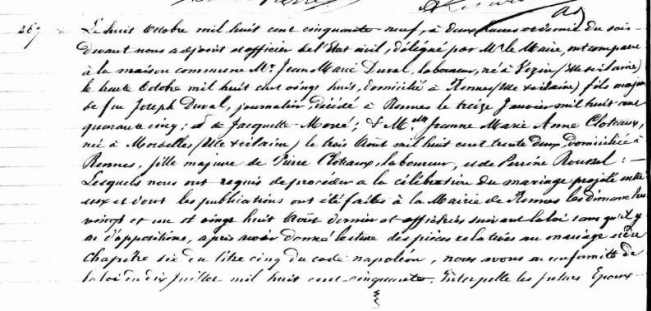 267 Le huit Octobre mil huit cent cinquante neuf, à deux heures et demie du soir
Devant nous adjoint et officier de l'Etat civil, délégué par Mr le Maire, ont comparu
à la maison commune Mr Jean Marie Duval, laboureur, né à Vezin (Ille & vilaine)
le trente Octobre mil huit cent vingt huit, domicilié à Rennes (Ille & vilaine) fils majeur
de feu Joseph Duval, journalier décédé à Rennes le treize Janvier mil huit cent
quarante cinq; & de Jacquette Morel; & Melle Jeanne Marie Anne Cloteaux,
née à Mordelles (Ille & vilaine) le trois Août mil huit cent trente deux, domiciliée à
Rennes, fille majeure de Pierre Cloteaux, laboureur, et de Perrine Roussel: —
Lesquels nous ont requis de procéder à la célébration du mariage projeté entre
eux et dont les publications ont été faites à la Mairie de Rennes les dimanches
vingt et un et vingt huit Août dernier et affichées suivant la loi sans qu'il y
ai d'oppositions, après avoir donné lecture des pièces relatives au mariage et du
chapitre six du titre cinq du code napoléon, nous avons en conformité de
la loi du dix Juillet mil huit cent cinquante. Interpellé les futurs Epoux